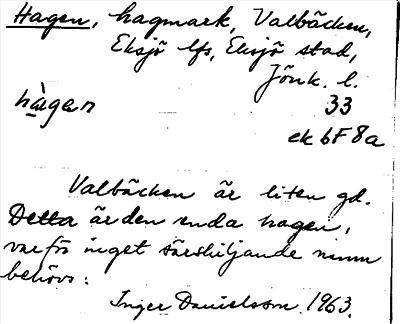 Hagen, hagmark, Valbäcken,
Eksjö lfs, Eksjö stad,
Jönk. l.
hàgen
33
ek 6F 8a
Valbäcken är liten gd.
Detta är den enda hagen,
varför inget särskiljande namn
behövs.
Inger Danielsson 1963.